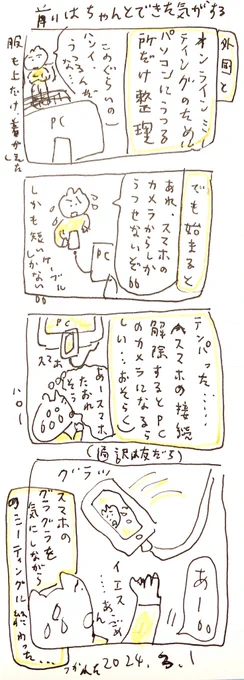 前はちゃんとできた気がする
外国と
オンラインミ
ーティングのため
パソコンにうつる
所だけ整理
このぐらいの
ハンイ、
うつる
んだ
な
PC
服も上だけ着がえました
でも始まると
あれ、スマホの
カメラからしか
うつせないぞ
しかも短い
ケーブル
しかない
PC
テンパった……
スマホの接続
解除するとPC
のカメラになるら
しい…おそらく
PC
スマホ
あ、スマホ
たおれ
そう
ハロー
(通訳は友だち)
グラッ
あー
イエス
……あ、
ごめ
ん
スマホの
グラグラを
気にしながら
のミーティング
終わった…
つかれた
2024.3.1